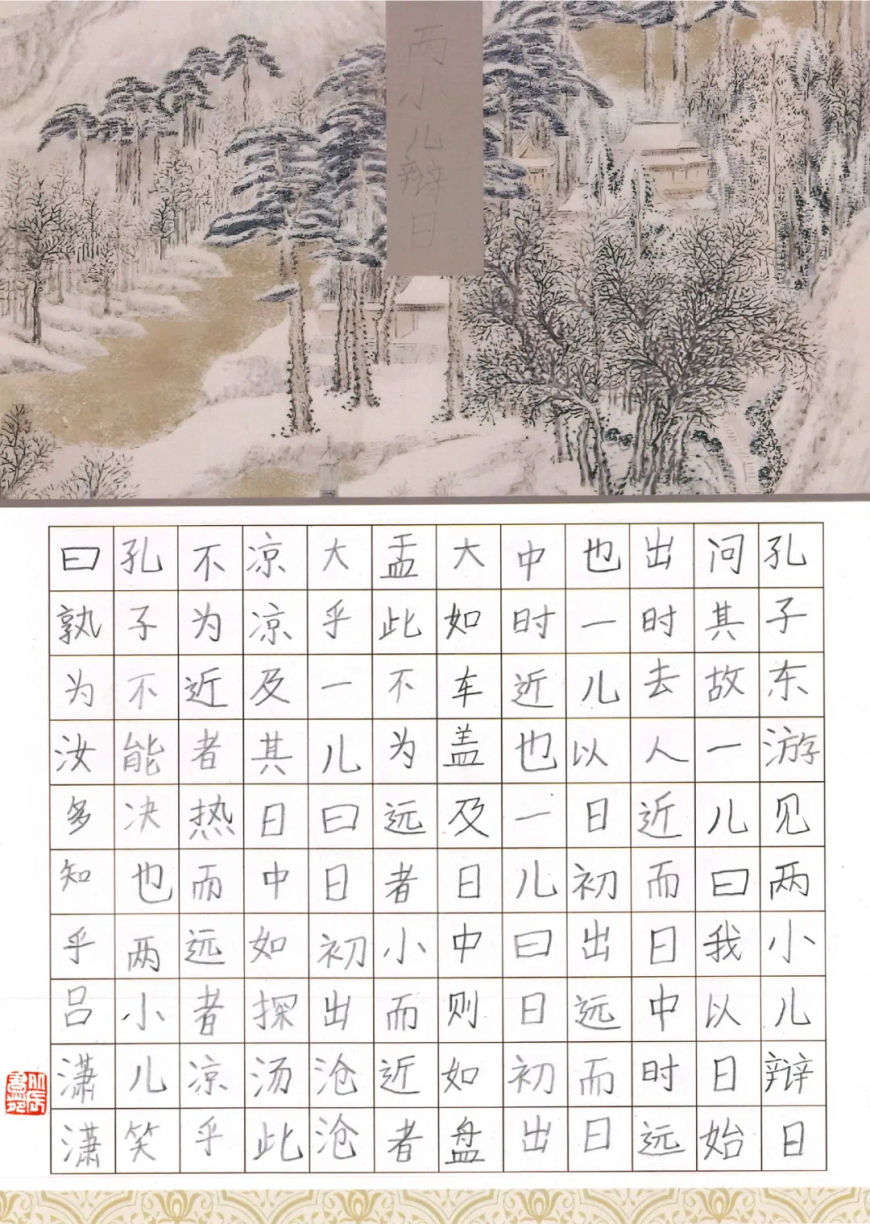 两小儿辩日
孔子东游见两小儿辩日
问其故一儿曰我以日始
出时去人近而日中时远
也一儿以日初出远而日
中时近也一儿曰日初出
大如车盖及日中则如盘
盂此不为远者小而近者
大乎一儿曰日初出沧沧
凉凉及其日中如探汤此
不为近者热而远者凉乎
孔子不能决也两小儿笑
曰孰为汝多知乎吕潇潇